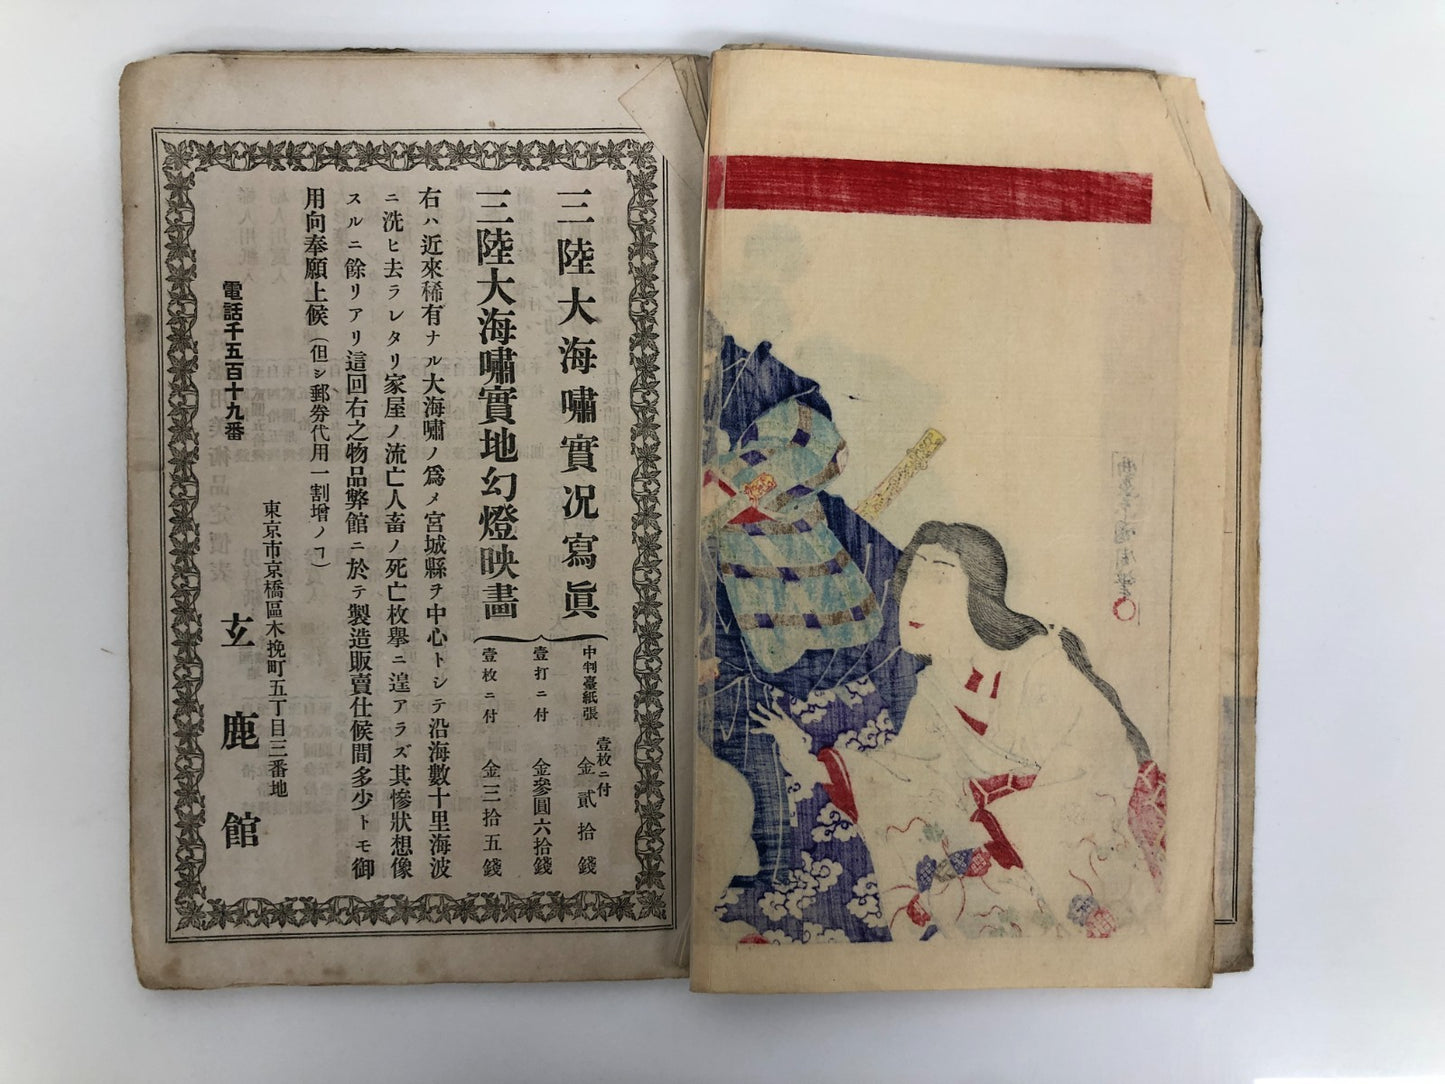 三陸大海嘯實况寫眞
三陸大海嘯實地幻燈映畵
中判臺紙張 壹枚ニ付 金貳拾錢
壹打ニ付 金參圓六拾錢
壹枚ニ付 金三拾五錢
右ハ近來稀有ナル大海嘯ノ爲メ宮城縣ヲ中心トシテ沿海數十里海波
ニ洗ヒ去ラレタリ家屋ノ流亡人畜ノ死亡枚擧ニ遑アラズ其慘狀想像
スルニ餘リアリ這回右之物品弊館ニ於テ製造販賣仕候間多少トモ御
用向奉願上候(但シ郵劵代用一割增ノヿ)
東京市京橋區木挽町五丁目三番地
電話千五百十九番
玄鹿館